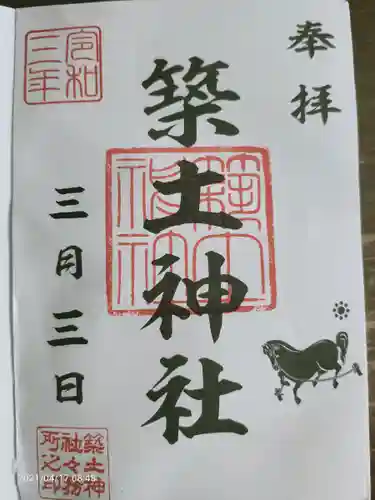 奉拝
築土神社
築土神社
令和三年
三月三日
築土神社々務所之印
2021/04/17 08:45